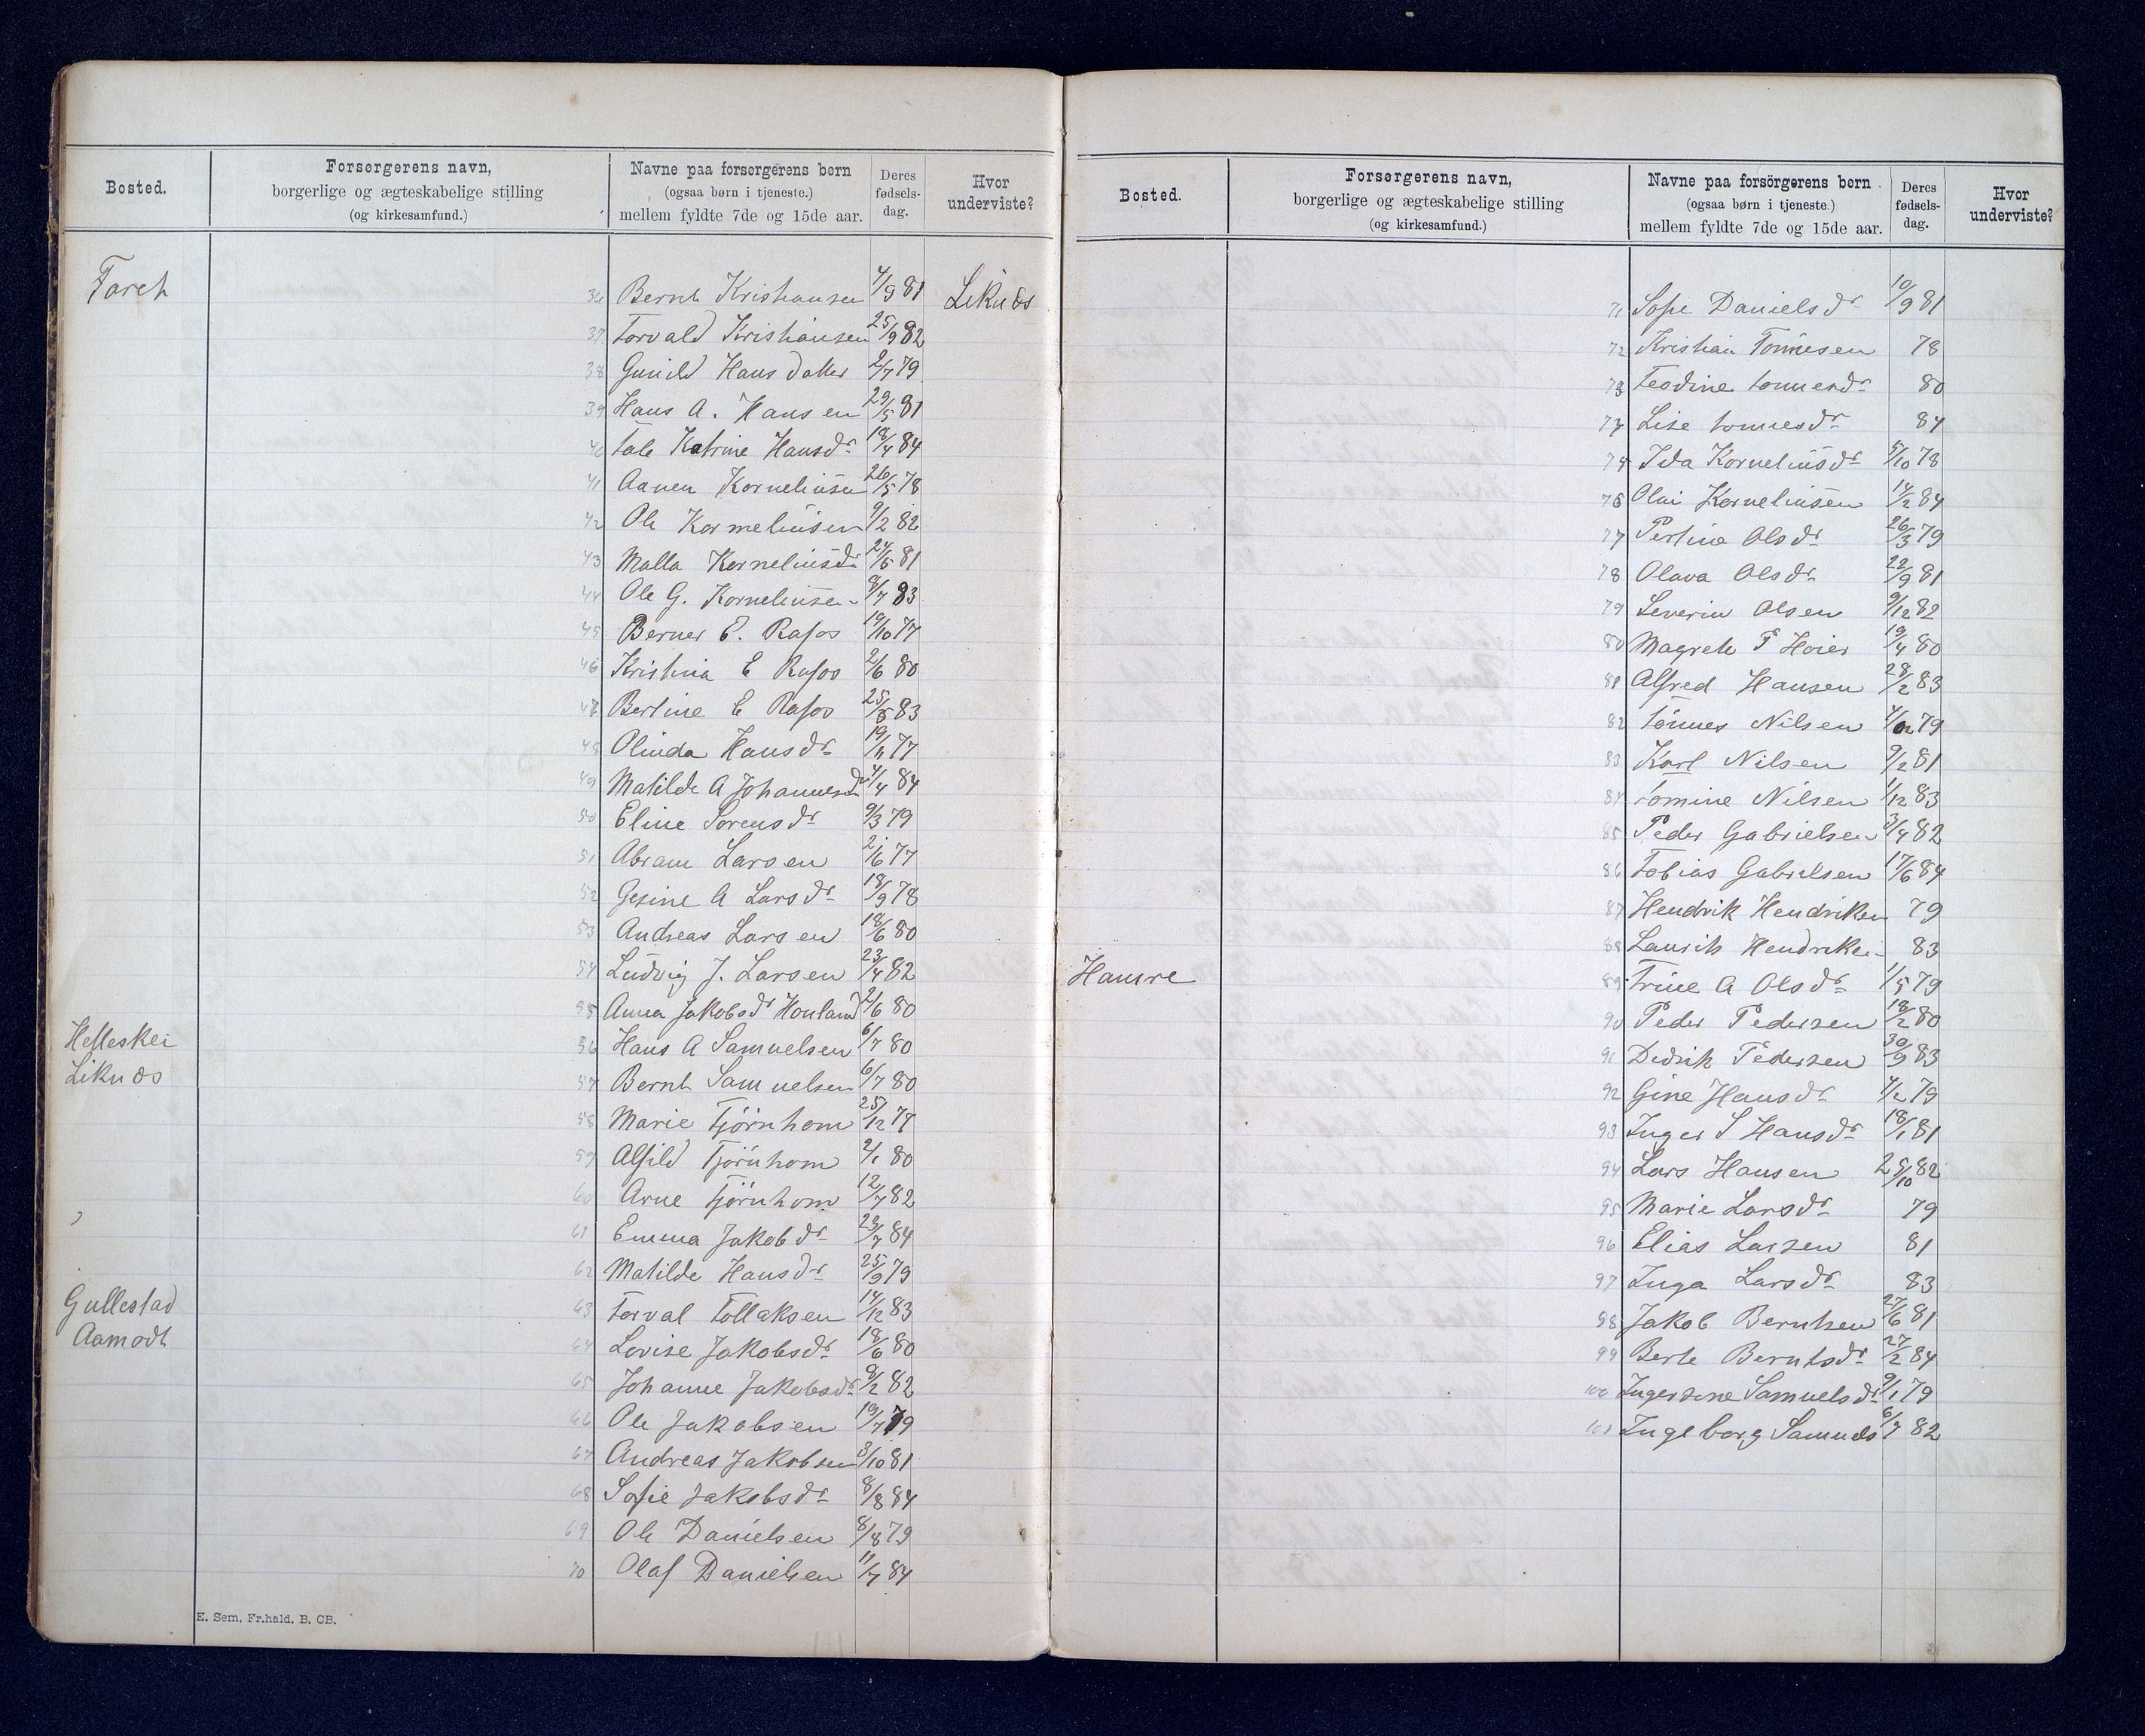 Bosted.
Forsørgerens navn,
borgerlige og ægteskabelige stilling
(og kirkesamfund.)
Navne paa forsørgerens børn
(ogsaa børn i tjeneste.)
mellem fyldte 7de og 15de aar.
Deres
fødsels-
dag.
Hvor
underviste?
Faret
36 Bernt Kristiansen 4/9 81 Liknæs
37 Torvald Kristiansen 25/9 82
38 Gunild Hansdatter 2/7 79
39 Hans A. Hansen 29/5 81
40 Tale Katrine Hansdr 18/4 84
41 Aanen Korneliusen 26/5 78
42 Ole Korneliusen 9/2 82
43 Malla Korneliusdr 24/5 81
44 Ole G. Korneliusen 8/7 83
45 Berner E. Rafos 19/10 77
46 Kristina E Rafos 2/6 80
47 Bertine E Rafos 25/5 83
48 Olinda Hansdr 19/11 77
49 Matilde A Johannesdr 4/4 84
50 Eline Sorensdr 9/3 79
51 Abram Larsen 2/6 77
52 Gesine A Larsdr 18/9 78
53 Andreas Larsen 18/6 80
54 Ludvig J. Larsen 23/4 82
55 Anna Jakobsdr Houland 2/6 80
Helleskei 56 Hans A Samuelsen 6/7 80
Liknæs 57 Bernt Samuelsen 6/7 80
58 Marie Tjörnhom 25/12 77
59 Alfild Tjörnhom 2/1 80
60 Arne Tjörnhom 12/7 82
61 Emma Jakobdr 23/7 84
62 Matilde Hansdr 25/9 79
Gullestad 63 Torval Tollaksen 14/12 83
Aamodt 64 Lovise Jakobsdr 18/6 80
65 Johanne Jakobsdr 9/2 82
66 Ole Jakobsen 19/7 79
67 Andreas Jakobsen 3/10 81
68 Sofie Jakobsdr 8/8 84
69 Ole Danielsen 8/8 79
70 Olaf Danielsen 11/7 84
E. Sem, Fr.hald. B. CB.
Bosted.
Forsørgerens navn,
borgerlige og ægteskabelige stilling
(og kirkesamfund.)
Navne paa forsörgerens børn
(ogsaa børn i tjeneste.)
mellem fyldte 7de og 15de aar.
Deres
fødsels-
dag.
Hvor
underviste?
71 Sofie Danielsdr 10/9 81
72 Kristian Tönnesen 78
73 Teodine Tonnesdr 80
74 Lise Tonnesdr 84
75 Ida Korneliusdr 5/10 78
76 Olai Korneliusen 14/2 84
77 Pertine Olsdr 26/3 79
78 Olava Olsdr 22/9 81
79 Severin Olsen 9/12 82
80 Magrete P Hoier 19/4 80
81 Alfred Hansen 28/2 83
82 Tönnes Nilsen 79
83 Karl Nilsen 9/2 81
84 Tomine Nilsen 1/12 83
85 Peder Gabrielsen 3/4 82
86 Tobias Gabrielsen 17/6 84
87 Hendrik Hendriksen 79
88 Laurits Hendriksen 83
Hamre 89 Trine A Olsdr 1/5 79
90 Peder Pedersen 18/2 80
91 Didrik Pedersen 30/9 83
92 Gine Hansdr 4/2 79
93 Inger S Hansdr 18/1 81
94 Lars Hansen 25/10 82
95 Marie Larsdr 79
96 Elias Larsen 81
97 Inga Larsdr 83
98 Jakob Berntsen 27/6 81
99 Berte Berntsdr 27/2 84
100 Ingersine Samuelsdr 9/1 79
101 Ingeborg Samuels 6/7 82